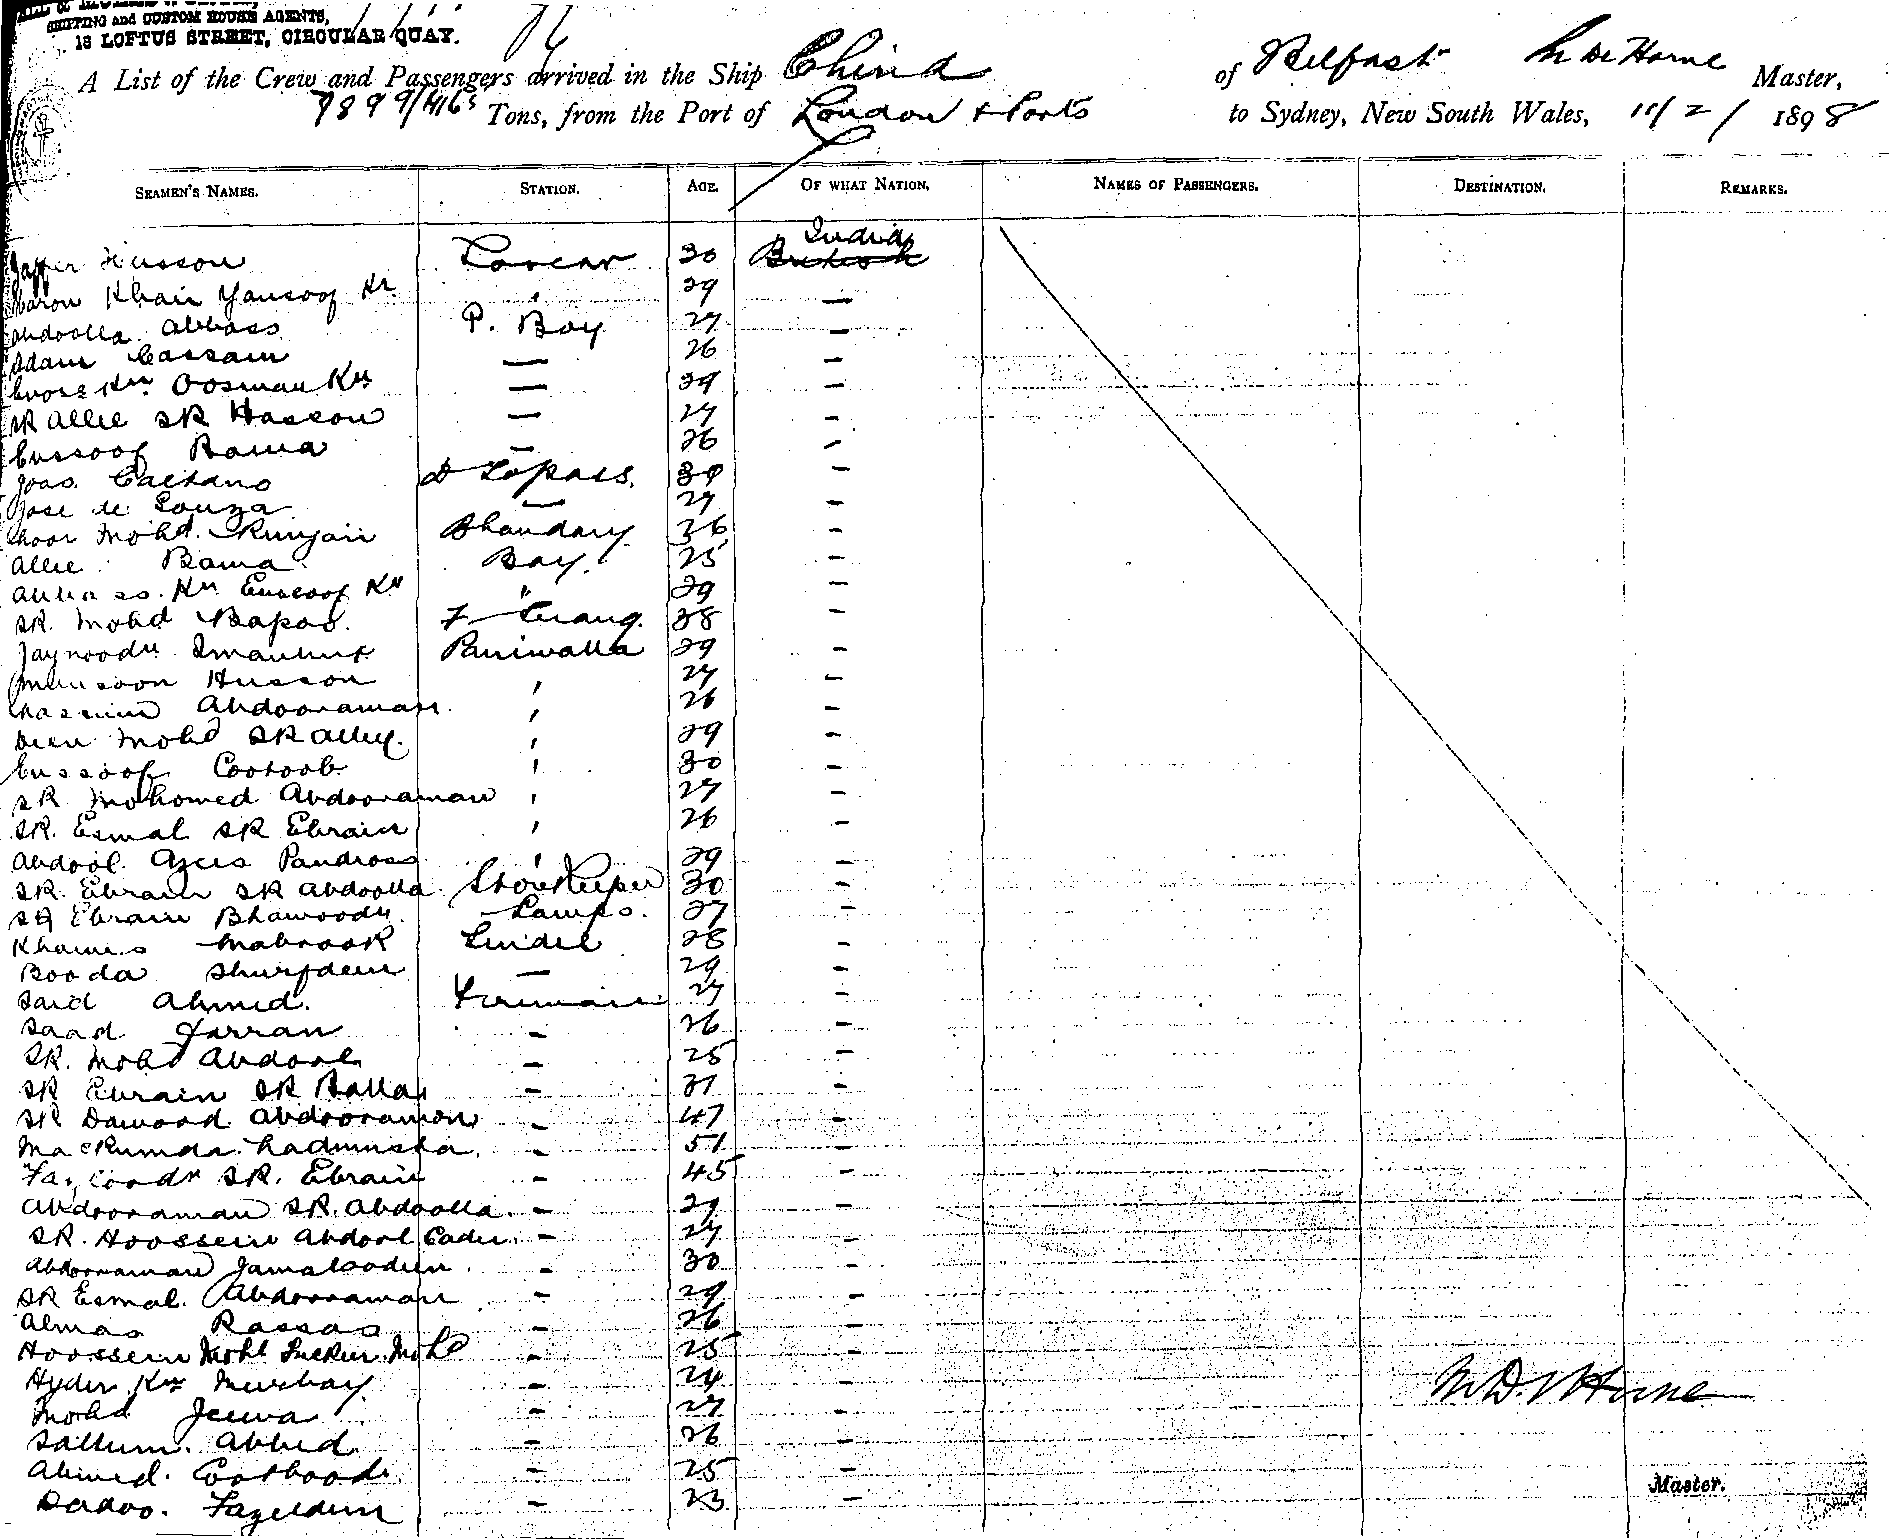 SHIPPING and CUSTOM HOUSE AGENTS,
13 LOFTUS STREET, CIRCULAR QUAY.
A List of the Crew and Passengers arrived in the Ship China of Belfast M De Horne Master,
Tons, from the Port of London & Ports to Sydney, New South Wales, 11/2/1898
SEAMEN'S NAMES. STATION. AGE. OF WHAT NATION. NAMES OF PASSENGERS. DESTINATION. REMARKS.
India
Jaffer Husson Lascar 30
Khair Yousoof Kn. 29 —
Abdoolla Abbass P. Boy 27 —
Adam Cassam — 26 —
Oosman Kn — 29 —
SR Allie SR Hasson — 27 —
Eussoof Bawa — 26 —
Joao Caetano D Topass. 39 —
Jose de Souza — 27 —
Noor Mohd. Bhandary 36 —
Allie Bawa Boy. 25 —
Abbass. Kn Eussoof Kn " 29 —
SR. Mohd Bapoo. 38 —
Jaynoodn Paniwalla 29 —
Husson ' 27 —
Abdooraman ' 26 —
Deen Mohd SR Alley. ' 29 —
Eussoof Cootoob ' 30 —
SR Mohomed Abdooraman ' 27 —
SR. Esmal SR Ebrain ' 26 —
Abdool Azeis ' 29 —
SR. Ebrain SR Abdoolla Storekeeper 30 —
SR Ebrain Bhawoodn Lamps. 27 —
Khamis Mabrook 28 —
Booda Shurfdeen — 29 —
Said Ahmed. Fireman 27 —
Saad Farran — 26 —
SR. Mohd Abdool — 25 —
SR Ebrain SR Balla — 31 —
SR Dawood Abdooramon — 47 —
— 51 —
SR. Ebrain — 45 —
Abdooraman SR. Abdoolla — 29 —
SR. Hoossein Abdool Cader — 27 —
Abdooraman Jamaloodeen — 30 —
SR Esmal. Abdooraman — 29 —
Almas Rassas — 26 —
Hoossein Mohd Mohd — 25 —
Hyder Kn — 24 —
M De Horne
Mohd Jeewa — 27 —
Sallum. Abbed — 26 —
Ahmed. Cootboodn — 25 —
Master.
Dadoo. Fazeldin — 23 —